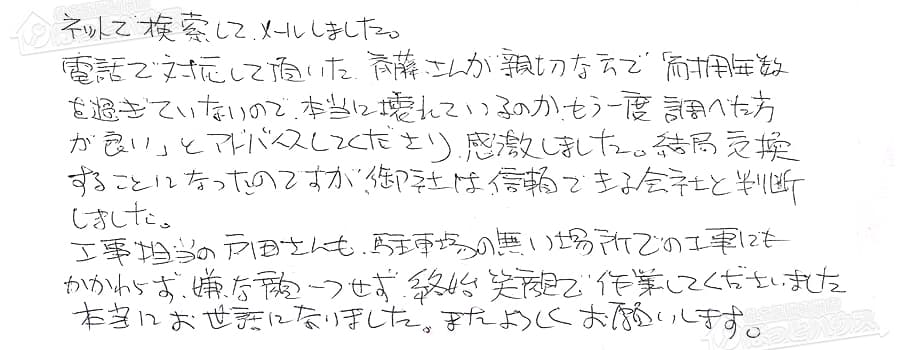 ネットで検索して、メールしました。
電話で対応して頂いた、斉藤さんが親切な方で「耐用年数
を過ぎていないので、本当に壊れているのか、もう一度調べた方
が良い」とアドバイスしてくださり、感激しました。結局交換
することになったのですが、御社は信頼できる会社と判断
しました。
工事担当の戸田さんも、駐車場の無い場所での工事にも
かかわらず、嫌な顔一つせず、終始笑顔で作業してくださいました
本当にお世話になりました。またよろしくお願いします。